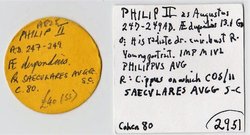 PHILIP II
A.D. 247-249
Æ dupondius.
R. SAECULARES AVGG.
S-C.
C. 80.
£40 (SS)
PHILIP II as Augustus
247-249AD. Æ dupondius 13.1 G
O; His radiate dr. cuir. bust R.
Young portrait. IMP M IVL
PHILIPPVS AVG
R: Cippus on which COS/II
SAECULARES AVGG S-C
Cohen 80
2951